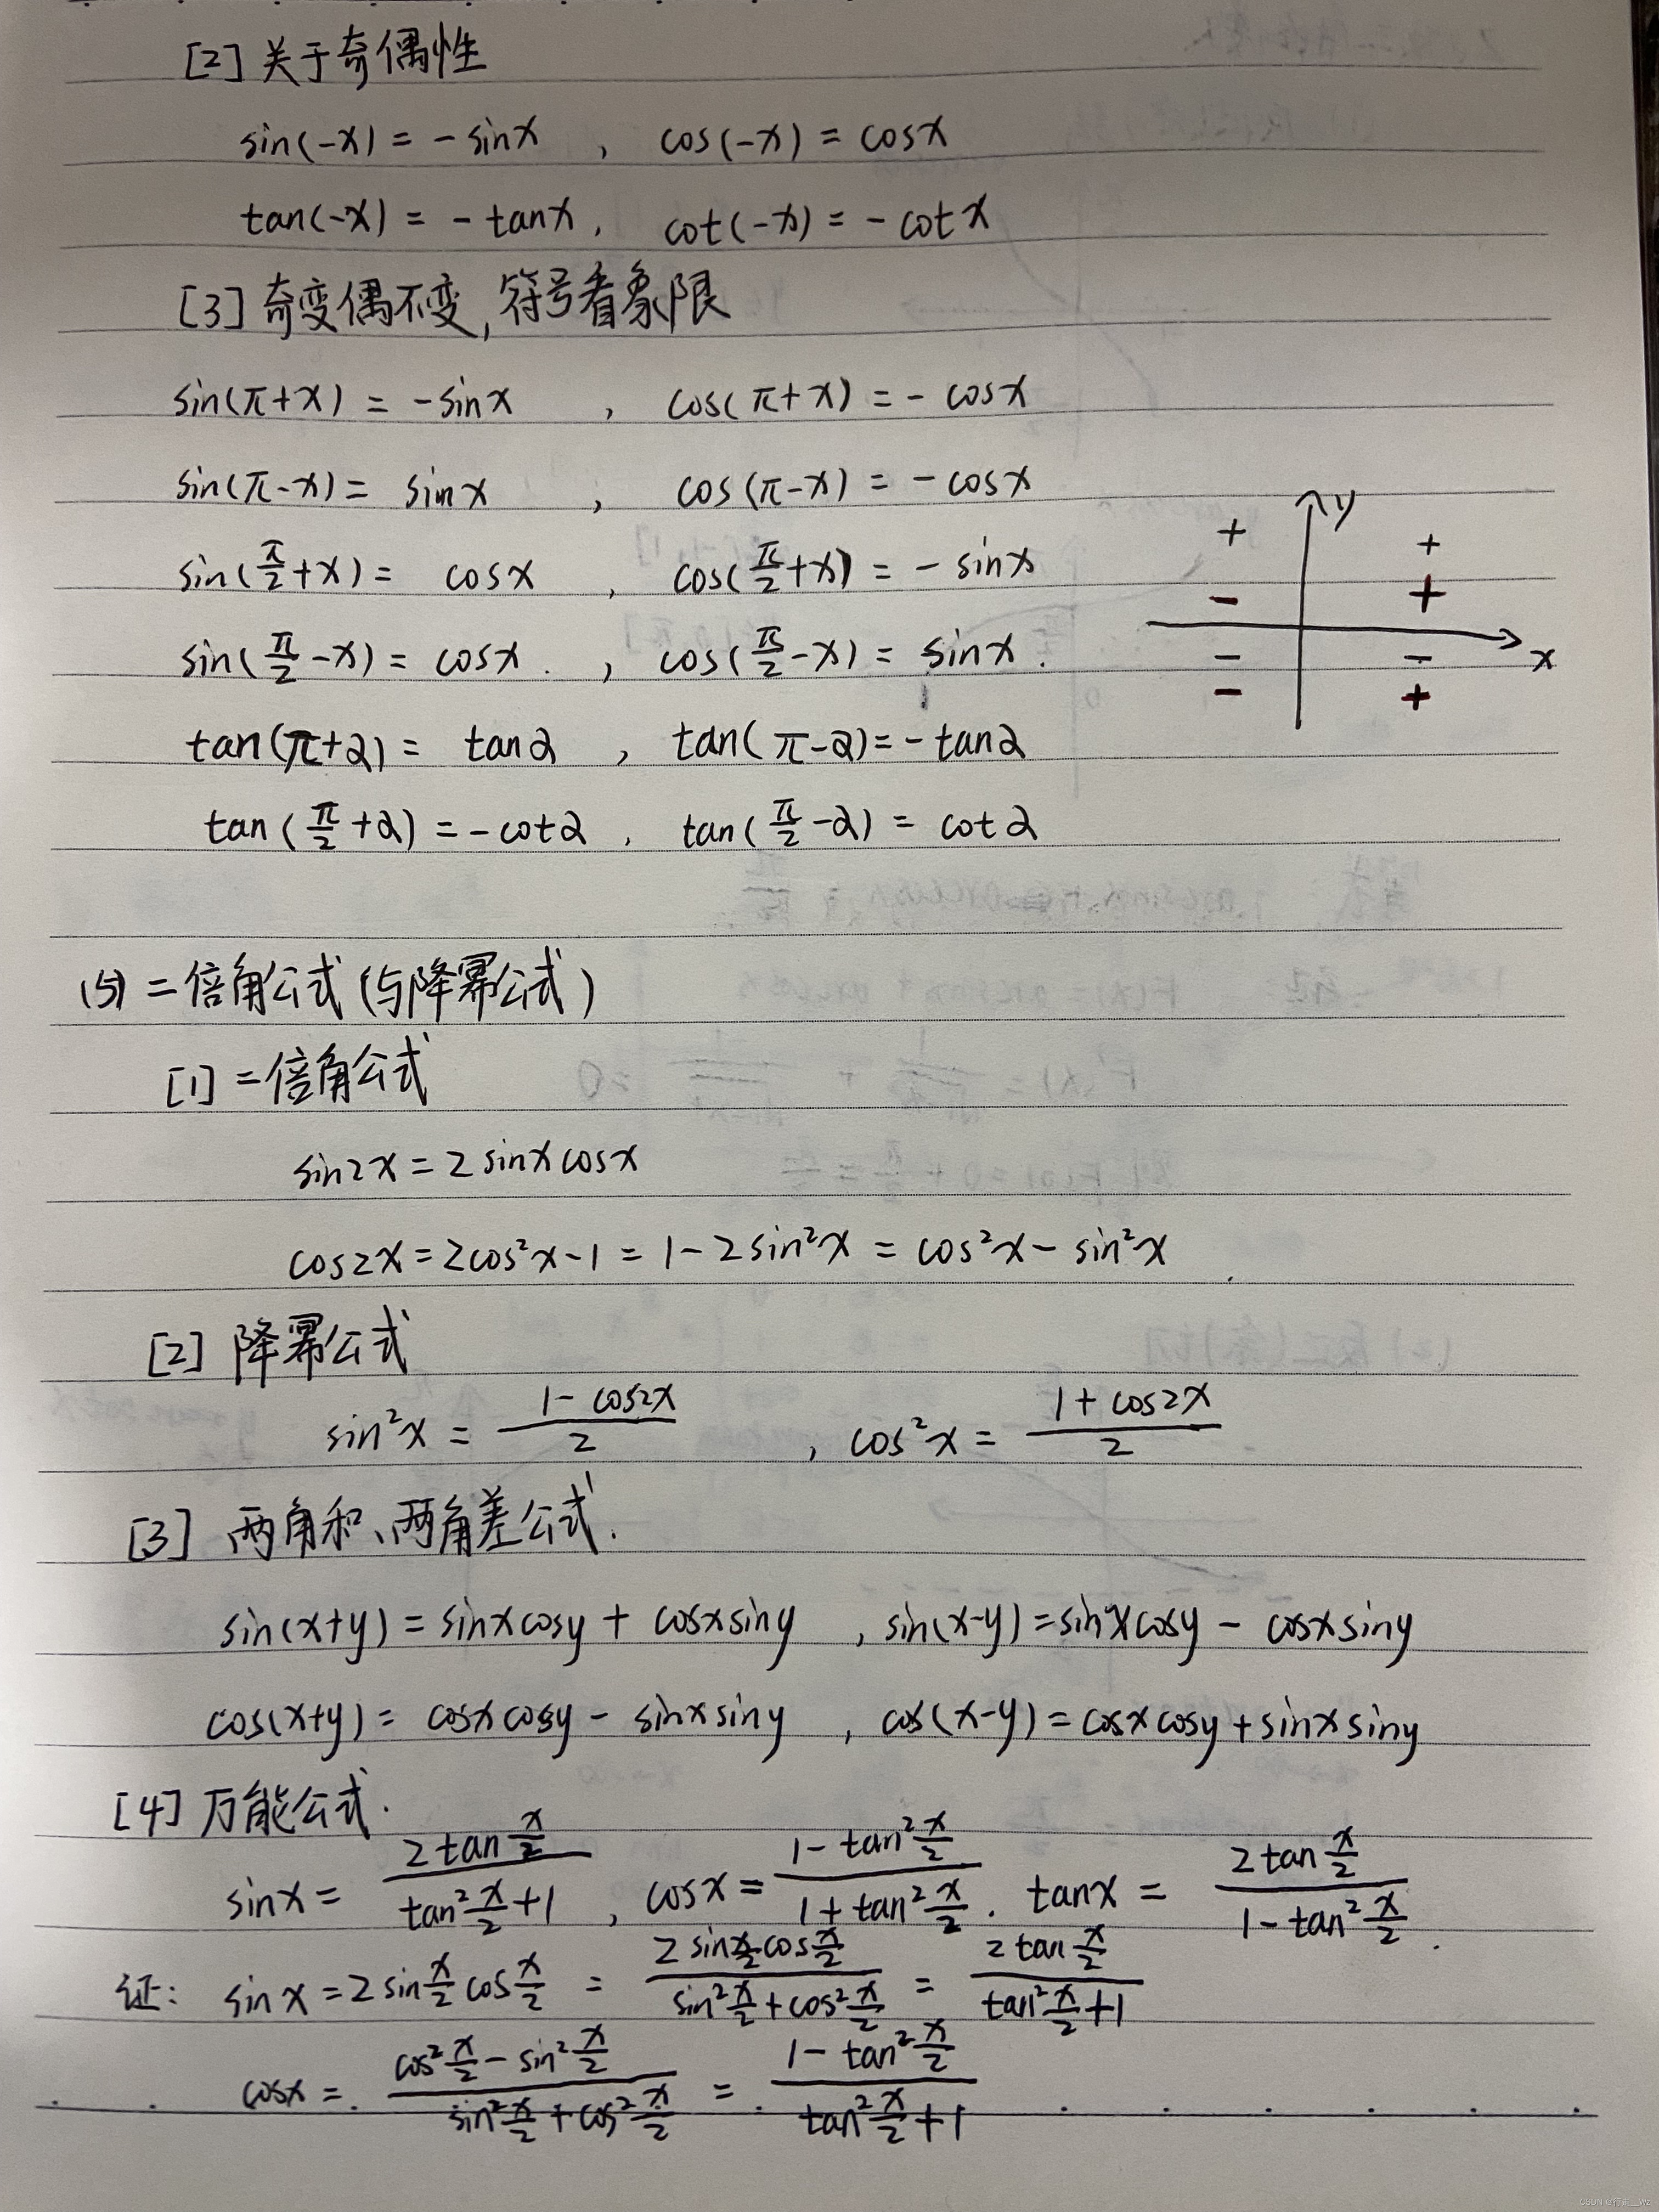 [2] 关于奇偶性
sin(-x) = - sinx , cos(-x) = cosx
tan(-x) = - tanx , cot(-x) = - cotx
[3] 奇变偶不变, 符号看象限
sin(π+x) = -sinx , cos(π+x) = - cosx
sin(π-x) = sinx , cos(π-x) = - cosx
y
+ +
sin(π/2+x) = cosx , cos(π/2+x) = - sinx
- +
sin(π/2-x) = cosx . , cos(π/2-x) = sinx .
- - x
- +
tan(π+α) = tanα , tan(π-α) = - tanα
tan(π/2+α) = - cotα , tan(π/2-α) = cotα
(5) 二倍角公式 (与降幂公式)
[1] 二倍角公式
sin2x = 2 sinx cosx
cos2x = 2cos²x - 1 = 1 - 2sin²x = cos²x - sin²x
[2] 降幂公式
sin²x = (1 - cos2x)/2 , cos²x = (1 + cos2x)/2
[3] 两角和、两角差公式.
sin(x+y) = sinxcosy + cosxsiny , sin(x-y) = sinxcosy - cosxsiny
cos(x+y) = cosxcosy - sinxsiny , cos(x-y) = cosxcosy + sinxsiny
[4] 万能公式.
sinx = (2tan x/2)/(tan² x/2 + 1) , cosx = (1 - tan² x/2)/(1 + tan² x/2) . tanx = (2tan x/2)/(1 - tan² x/2) .
证: sinx = 2 sin x/2 cos x/2 = (2 sin x/2 cos x/2)/(sin² x/2 + cos² x/2) = (2tan x/2)/(tan² x/2 + 1)
cosx = (cos² x/2 - sin² x/2)/(sin² x/2 + cos² x/2) = (1 - tan² x/2)/(tan² x/2 + 1)